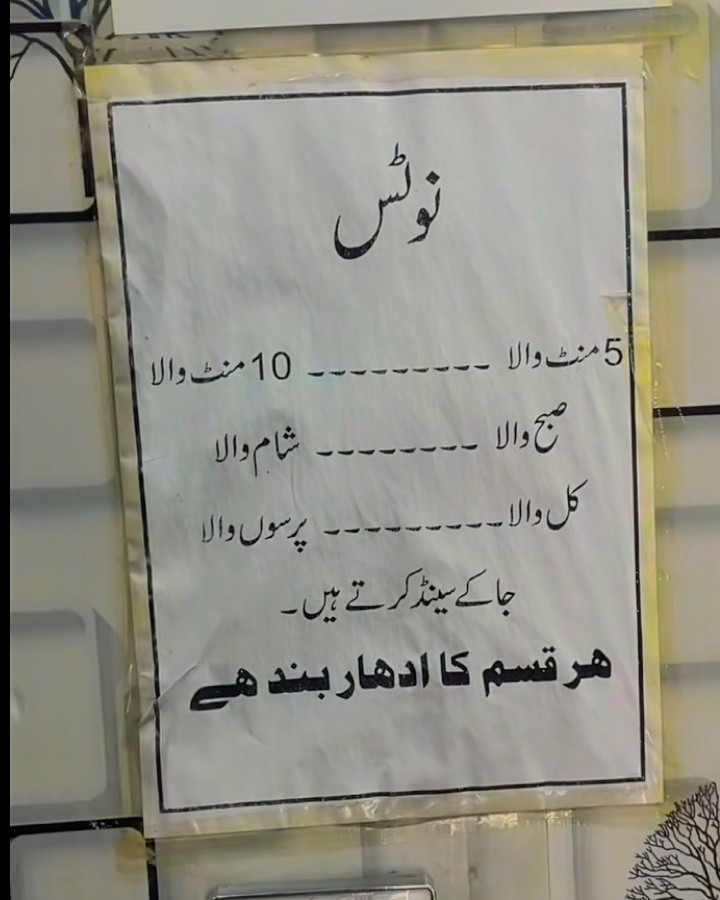 نوٹس
5 منٹ والا --------- 10 منٹ والا
صبح والا -------- شام والا
کل والا --------- پرسوں والا
جا کے سینڈ کرتے ہیں۔
ھر قسم کا ادھار بند ھے